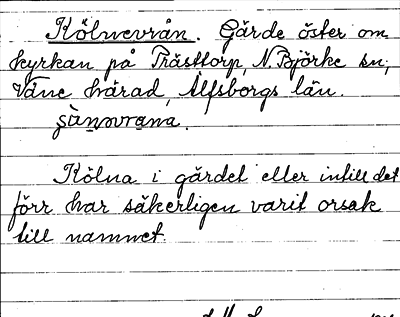 Kölnevrån. Gärde öster om
kyrkan på Prästtorp, N. Björke sn,
Väne härad, Älfsborgs län.
Kölna i gärdet eller intill det
förr har säkerligen varit orsak
till namnet.